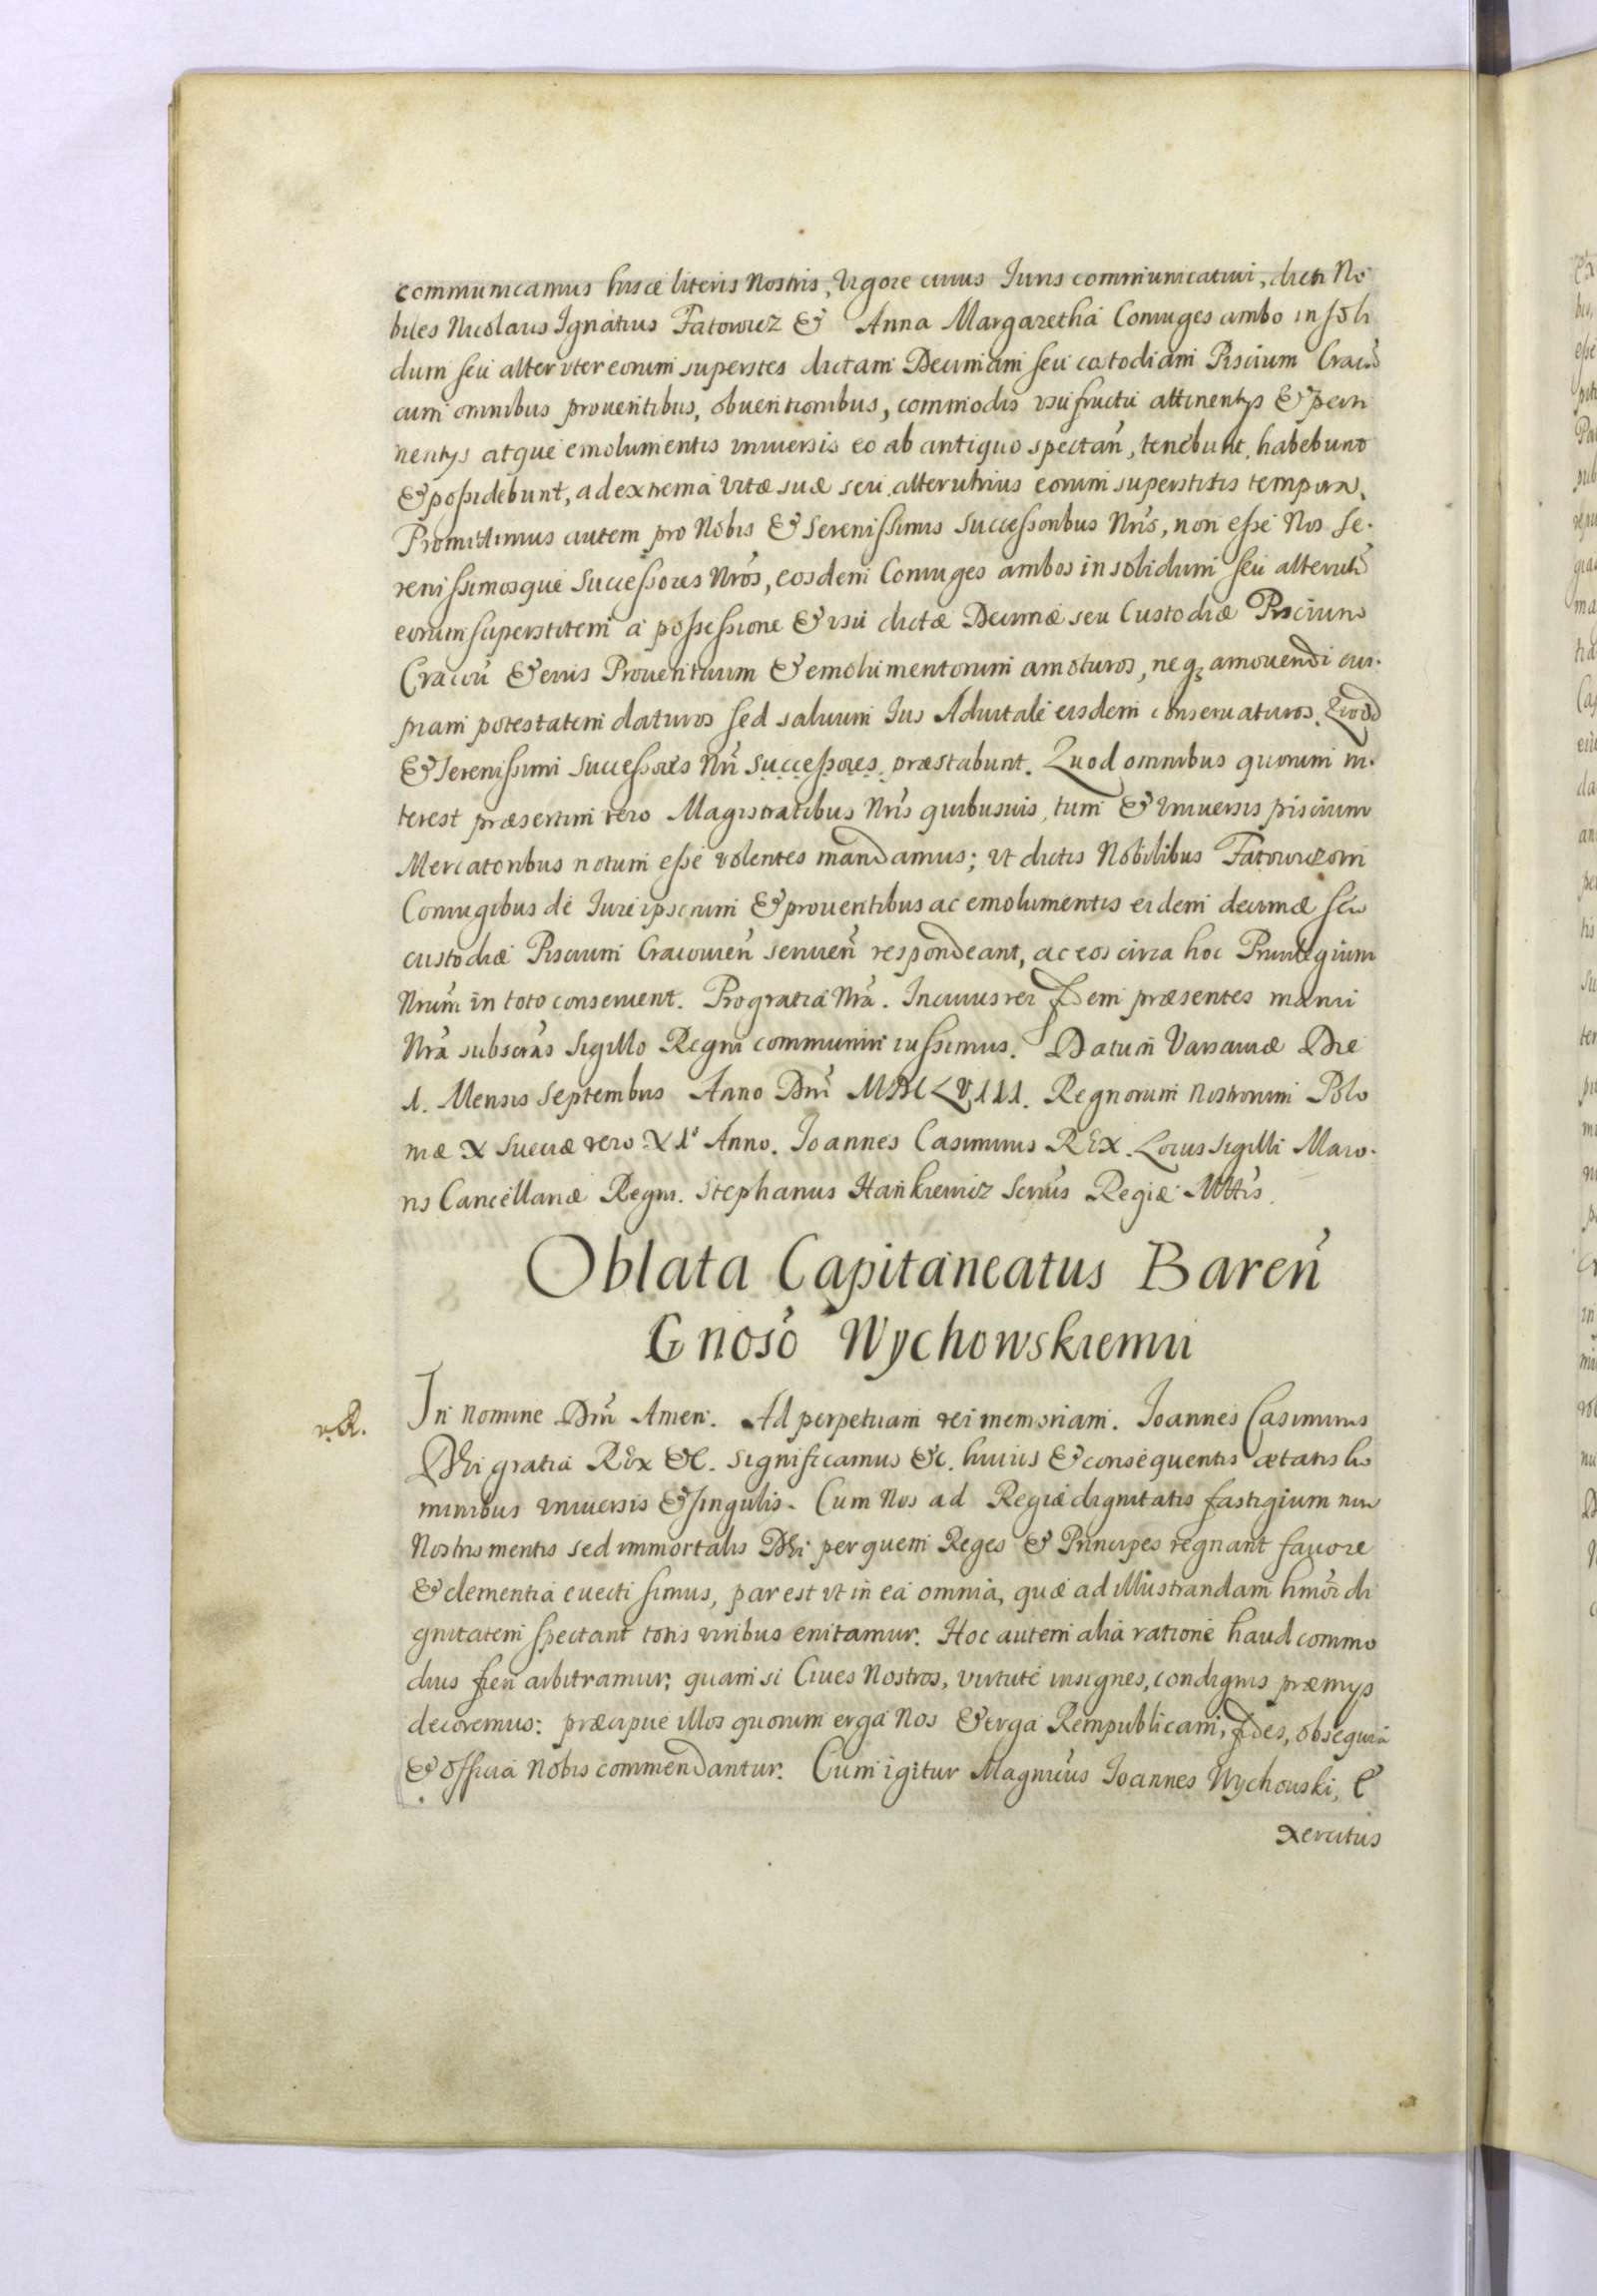 communicamus hisce literis Nostris, Vigore cuius Juris communicativi, dicti No
biles Nicolaus Ignatius Fatowicz & Anna Margaretha Coniuges ambo in soli
dum seu alteruter eorum superstes dictam Decimam seu custodiam Piscium Cracoũ
cum omnibus prouentibus, obuentionibus, commodis usufructu attinentys & perti
nentys atque emolumentis vniuersis eo ab antiquo spectañ, tenebunt, habebunt
& possidebunt, ad extrema vitæ suæ seu alterutrius eorum superstitis tempora.
Promittimus autem pro Nobis & Serenissimis Successoribus Nrĩs, non esse Nos se.
renissimosque Successores Nrõs, eosdem Coniuges ambos in solidum seu alterutrũ
eorum superstitem a possessione & usu dictæ Decimæ seu Custodiæ Piscium
Cracoũ & eius Prouentuum & emolumentorum amoturos, neq; amouendi cui.
piam potestatem daturos sed saluum Ius Aduitale eisdem conseruaturos. Quod
& Serenissimi Successores Nrĩ Successores, præstabunt. Quod omnibus quorum in.
terest præsertim vero Magistratibus Nrĩs quibusuis, tum & vniuersis piscium
Mercatoribus notum esse volentes mandamus; vt dictis Nobilibus Fatowiczom
Coniugibus de Iure ipsorum & prouentibus ac emolumentis eidem decimæ seu
custodiæ Piscium Cracouieñ seruieñ respondeant, ac eos circa hoc Priuilegium
Nrũm in toto conseruent. Pro gratia Nrã. In cuius rei fidem præsentes manu
Nrã subscrãs Sigillo Regni communiri iussimus. Datum Varsauiæ Die
1. Mensis Septembris Anno Dnĩ MDCLVIII. Regnorum Nostrorum Polo
niæ X Sueciæ vero XI° Anno. Ioannes Casimirus REX. Locus Sigilli Maio.
ris Cancellariæ Regni. Stephanus Hańkiewicz Secrũs Regiæ Mttĩs.
Oblata Capitaneatus Bareñ
Gnosõ Wychowskiemu
v.R. In Nomine Dnĩ Amen. Ad perpetuam rei memoriam. Ioannes Casimirus
Dei gratia REX &c. Significamus &c. huius & consequentis ætatis ho
minibus vniuersis & singulis. Cum Nos ad Regiæ dignitatis fastigium non
Nostris meritis sed immortalis Dei per quem Reges & Principes regnant fauore
& clementia euecti simus, par est vt in ea omnia, quæ ad illustrandam hmõi di
gnitatem spectant totis viribus enitamur. Hoc autem alia ratione haud commo
dius fieri arbitramur; quam si Ciues Nostros, virtute insignes, condignis præmys
decoremus: præcipue illos quorum erga Nos & erga Rempublicam, fides, obsequia
& officia Nobis commendantur. Cum igitur Magnicũs Ioannes Wychouski, E
xercitus